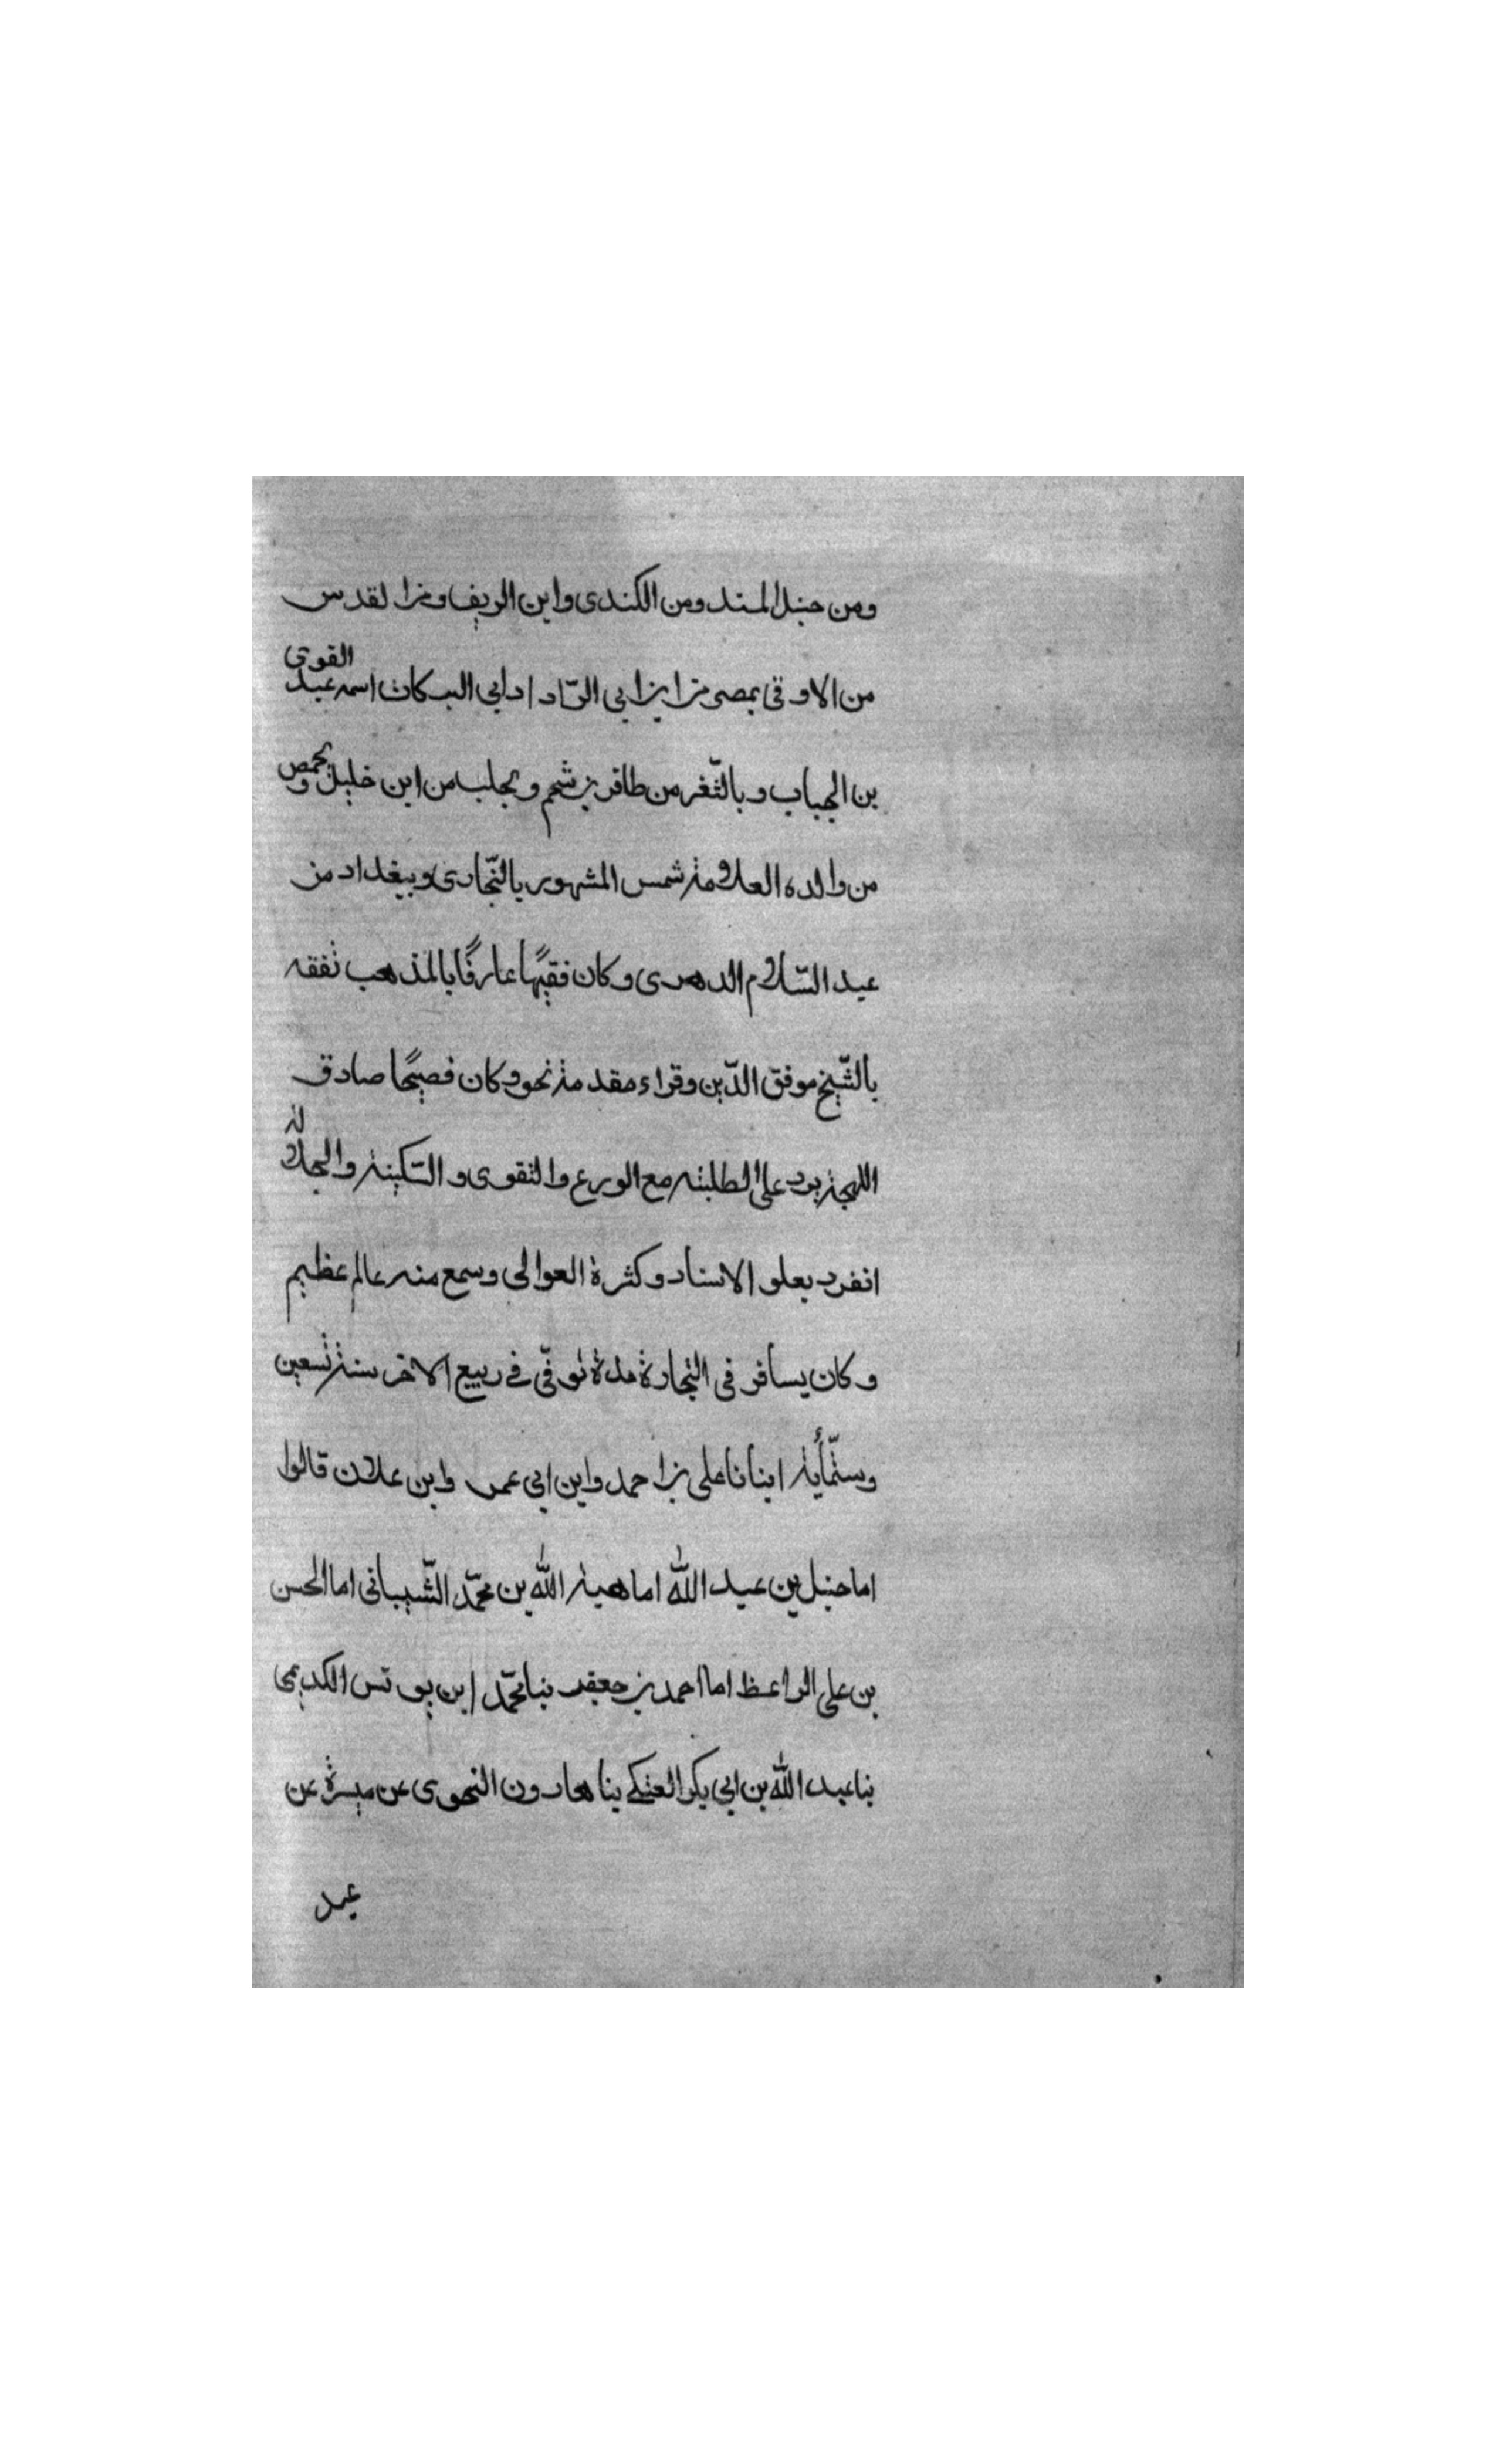 ومن حنبل المسند ومن الكندى وابن الريف ومن القدس
من الاوقى بمصر من ابن ابى الرّداد ابى البركات اسمه عبد القوى
بن الجباب وبالثّغر من ظافر بن شحم وبحلب من ابن خليل وبحمص
من والده العلامة شمس المشهور بالنّجارى وببغداد من
عبد السّلام الدهرى وكان فقيهًا عارفًا بالمذهب تفقه
بالشّيخ موفق الدّين وقراء مقدمة نحو وكان فصيحًا صادق
اللهجة يرد على الطلبة مع الورع والتقوى والسّكينة والجلالة
انفرد بعلو الاسناد وكثرة العوالى وسمع منه عالم عظيم
وكان يسافر فى التجارة مدة توفّى فى ربيع الاخر سنة تسعين
وستّمأية انبانا على بن احمد وابن ابى عمر وابن علان قالوا
اما حنبل بن عبد الله اما هبة الله بن محمّد الشّيبانى اما الحسن
بن على الواعظ اما احمد بن جعفر ثنا محمّد ابن يونس الكديمى
ثنا عبد الله بن ابى بكر العتكى ثنا هارون النحوى عن ميسرة عن
عبد